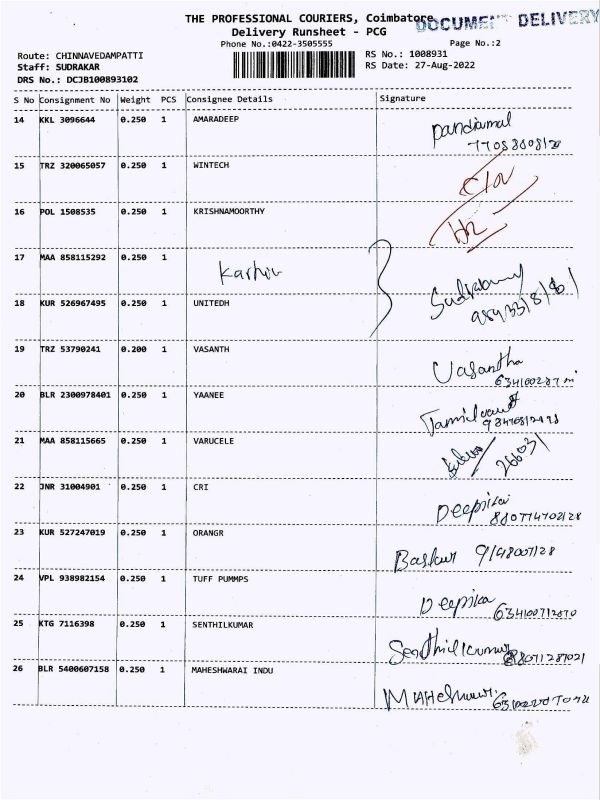 THE PROFESSIONAL COURIERS, Coimbatore
DOCUMENT DELIVERY
Delivery Runsheet - PCG
Phone No.:0422-3505555
Page No.:2
Route: CHINNAVEDAMPATTI
RS No.: 1008931
Staff: SUDRAKAR
RS Date: 27-Aug-2022
DRS No.: DCJB100893102
S No Consignment No Weight PCS Consignee Details Signature
14 KKL 3096644 0.250 1 AMARADEEP
15 TRZ 320065057 0.250 1 WINTECH
16 POL 1508535 0.250 1 KRISHNAMOORTHY
17 MAA 858115292 0.250 1
18 KUR 526967495 0.250 1 UNITEDH
19 TRZ 53790241 0.200 1 VASANTH Vasantha
20 BLR 2300978401 0.250 1 YAANEE
21 MAA 858115665 0.250 1 VARUCELE
22 JNR 31004901 0.250 1 CRI Deepika
23 KUR 527247019 0.250 1 ORANGR
24 VPL 938982154 0.250 1 TUFF PUMMPS Deepika
25 KTG 7116398 0.250 1 SENTHILKUMAR Senthilkumar
26 BLR 5400607158 0.250 1 MAHESHWARAI INDU